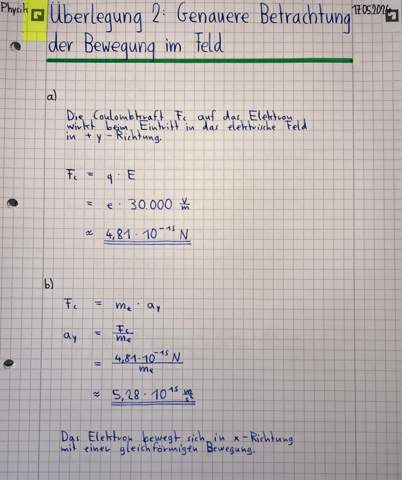 Physik Überlegung 2: Genauere Betrachtung 17.05.2024
der Bewegung im Feld
a)
Die Coulombkraft Fc auf das Elektron
wirkt beim Eintritt in das elektrische Feld
in +y-Richtung.
Fc = q · E
= e · 30.000 V/m
≈ 4,81 · 10⁻¹⁵ N
b)
Fc = me · ay
ay = Fc/me
= 4,81 · 10⁻¹⁵ N/me
≈ 5,28 · 10¹⁵
Das Elektron bewegt sich in x-Richtung
mit einer gleichförmigen Bewegung.